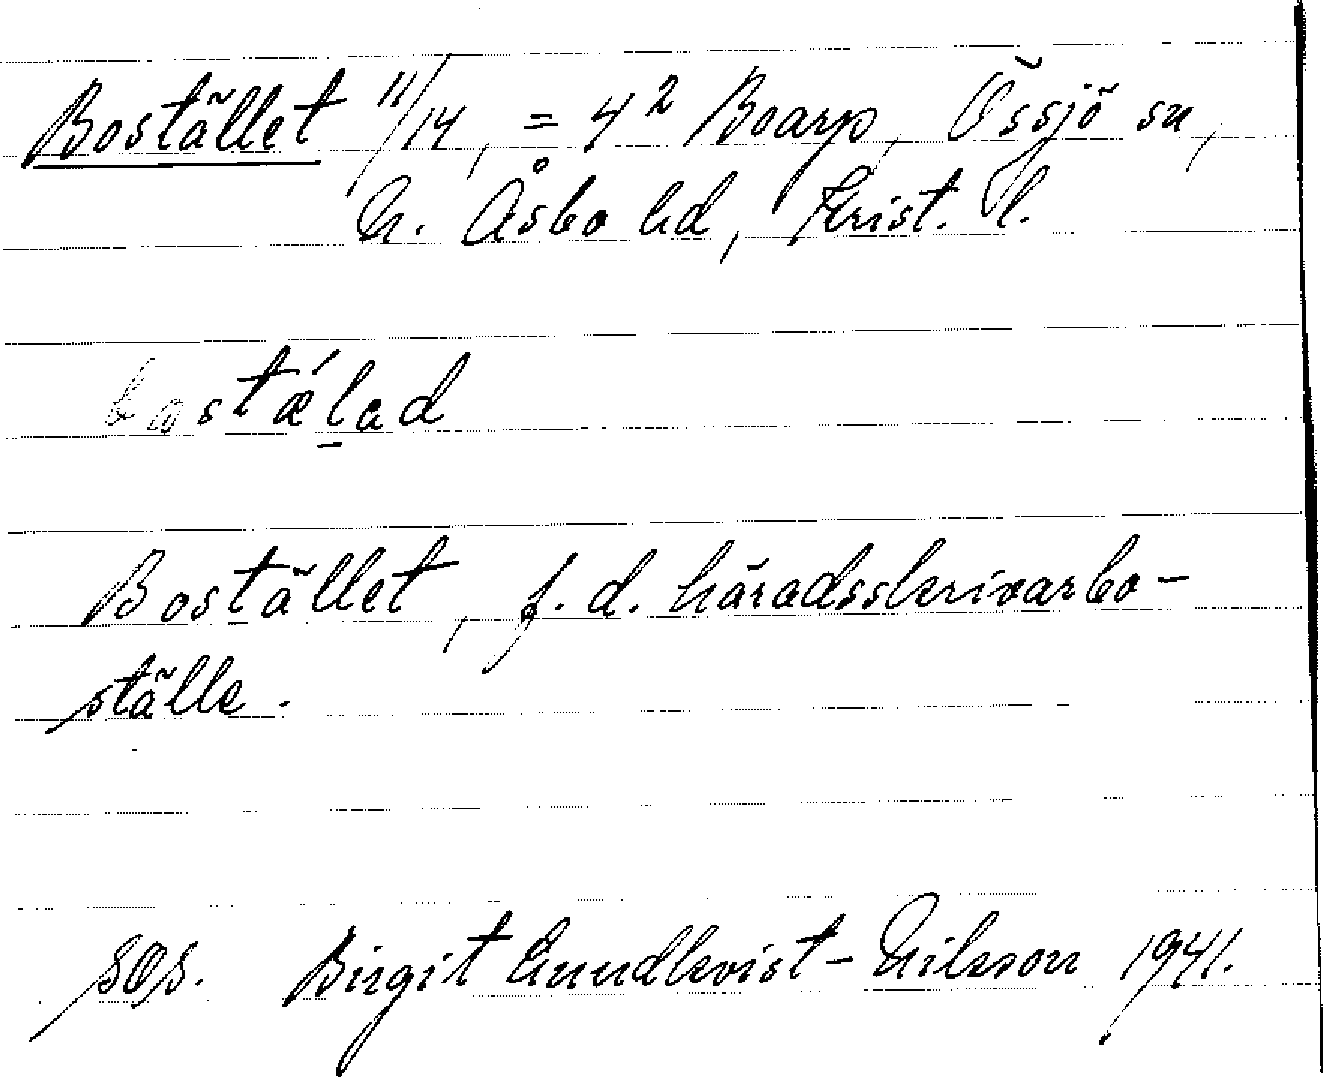 Bostället 11/14, = 4² Boarp, Össjö sn,
N. Åsbo hd, Krist. l.
bostǽlad
Bostället, f.d. häradsskrivarbo-
ställe.
Birgit Lundkvist-Nilsson 1941.